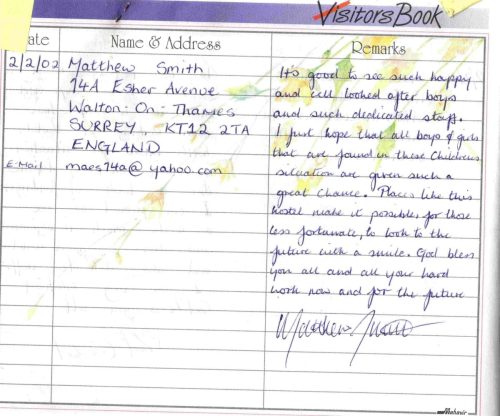 Visitors Book
ate
Name & Address
Remarks
2/2/02
Matthew Smith
74A Esher Avenue
Walton-On-Thames
SURREY, KT12 2TA
ENGLAND
E-Mail
maes74a@yahoo.com
Its good to see such happy
and well looked after boys
and such dedicated staff.
I just hope that all boys & girls
that are found in these Childrens
situation are given such a
great chance. Places like this
hostel make it possible, for those
less fortunate, to look to the
future with a smile. God bless
you all and all your hard
work now and for the future
Matthew Smith
Mahavir